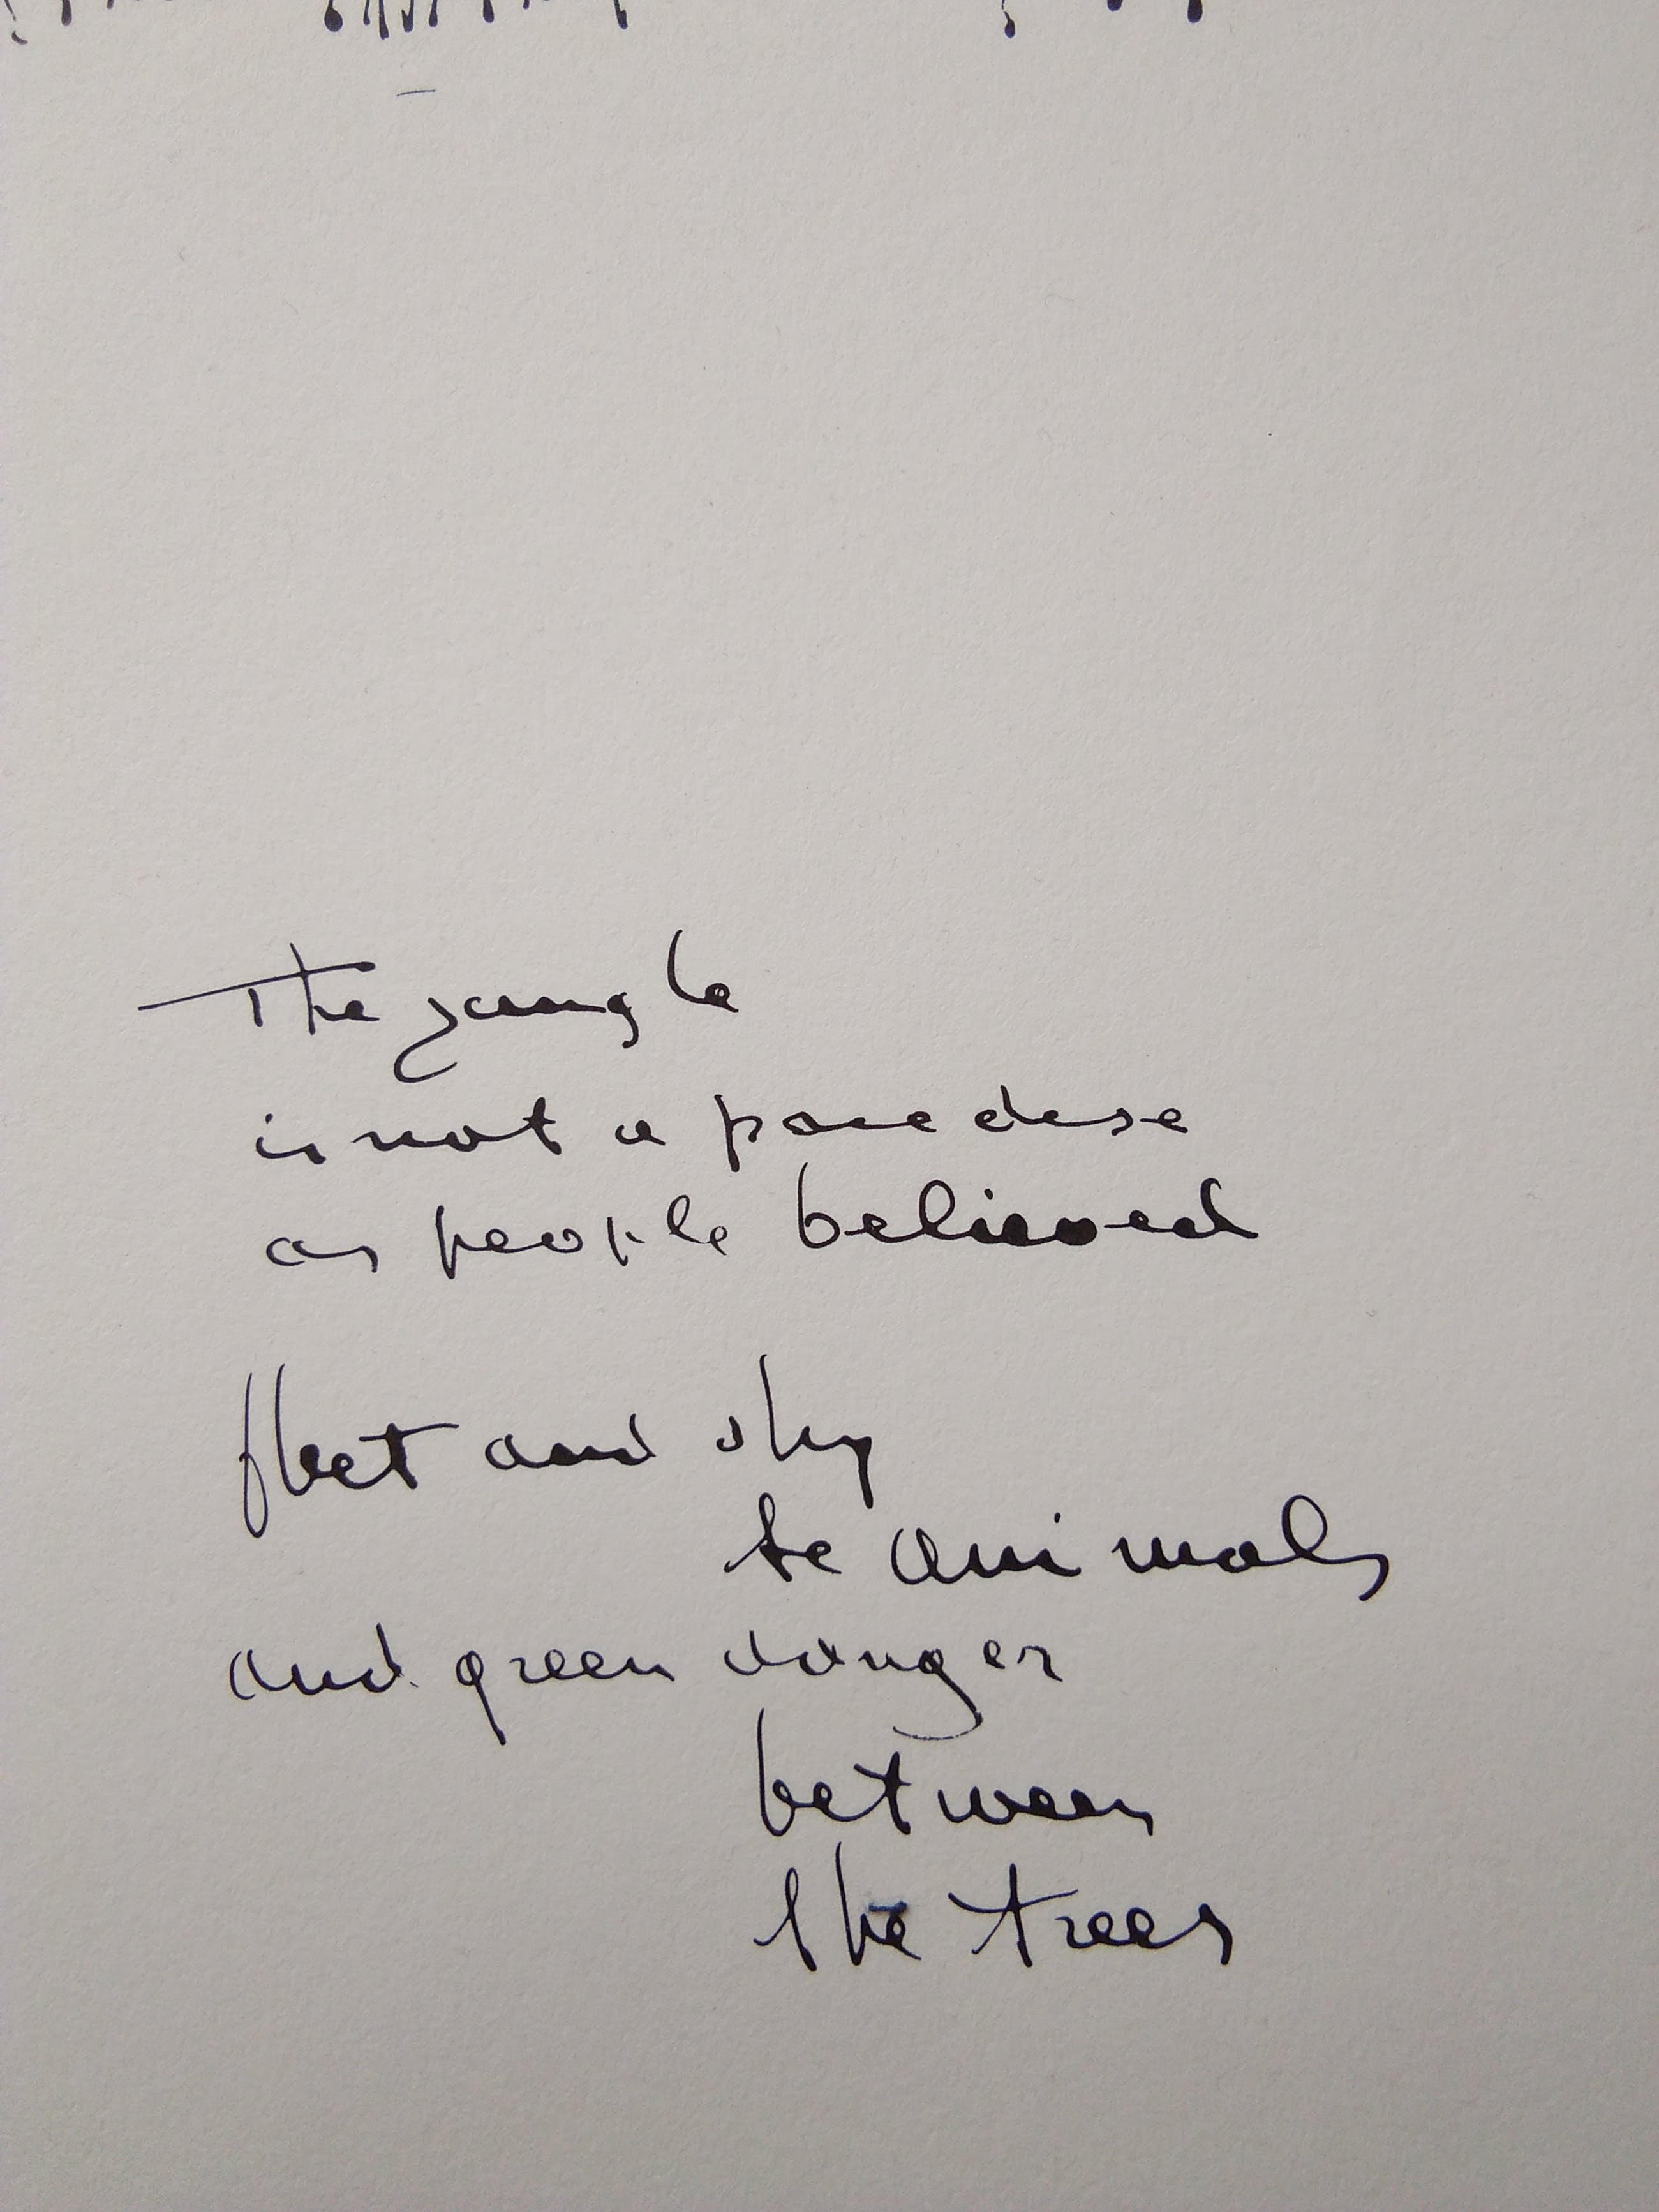 The jungle
is not a paredese
as people believed
fleet and shy
te animals
and green danger
between
the trees